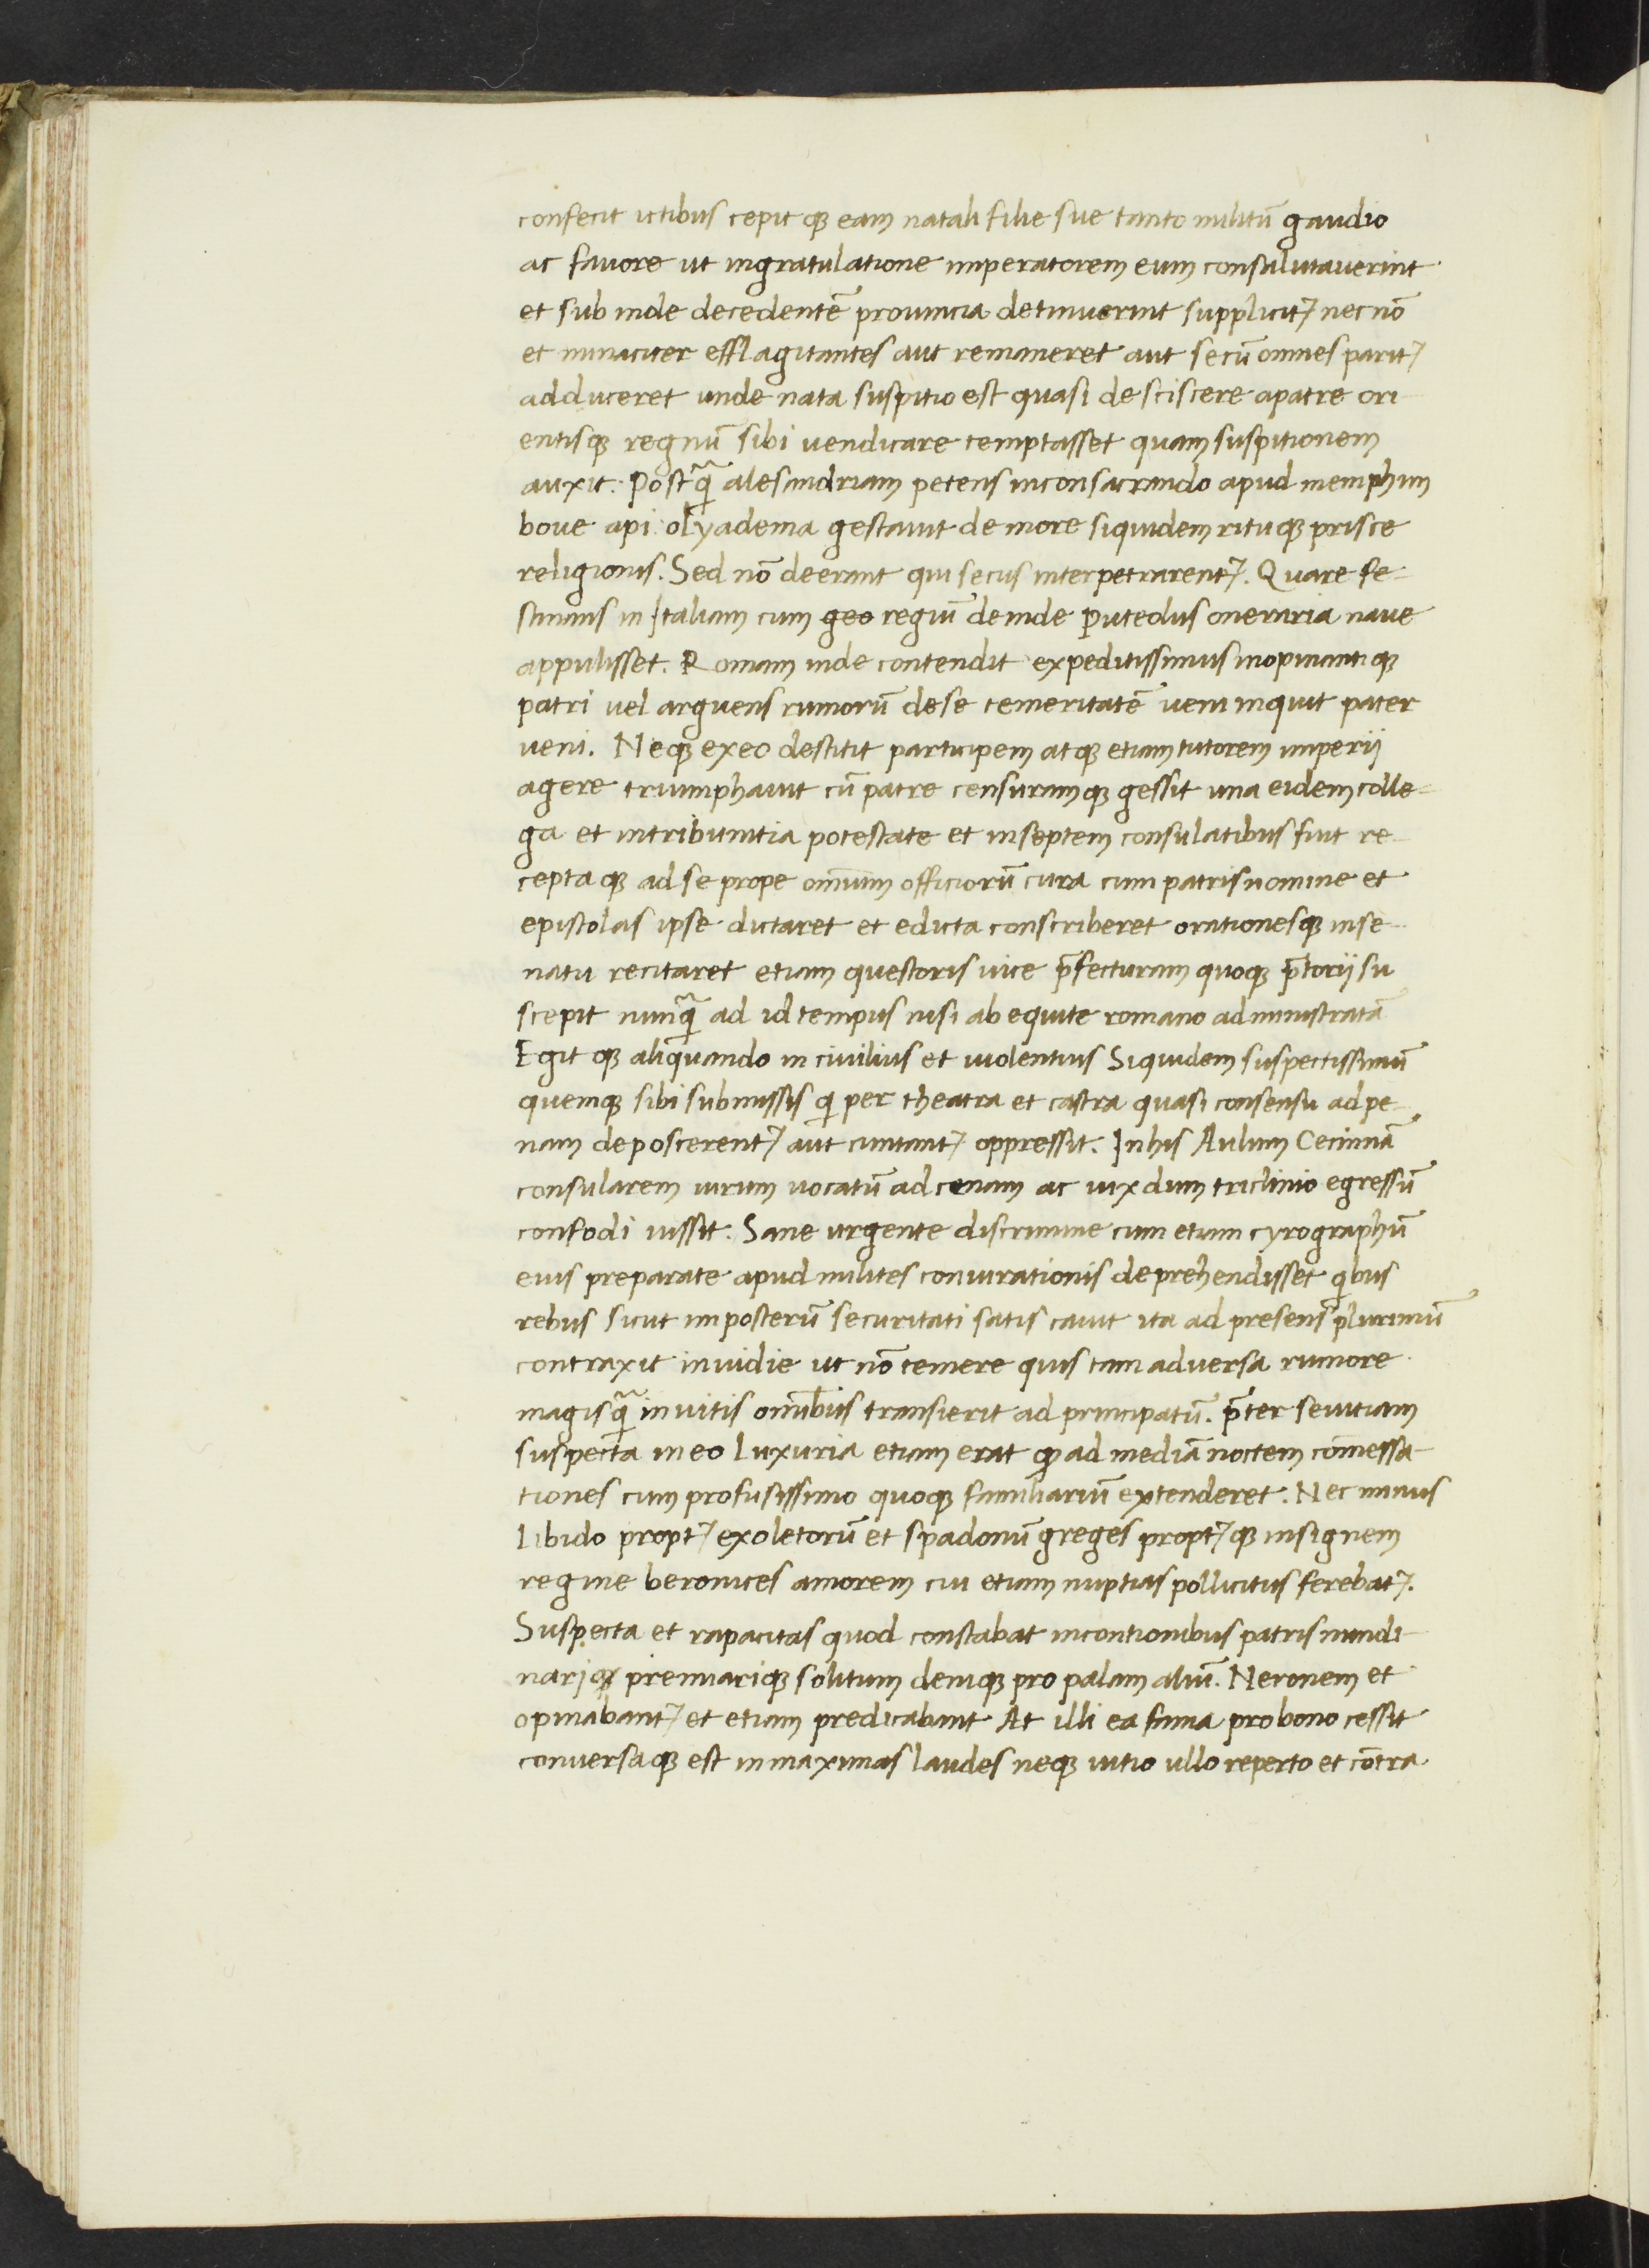 confecit ictibus cepit qꝫ eam natali filie sue tanto militū gaudio
ac favore ut ingratulatione imperatorem eum consalutaverint
et sub inde decedentē provincia detinuerint supplicit⁊ nec nō
et minaciter efflagitantes aut remaneret aut secū omnes parit⁊
adduceret unde nata suspitio est quasi desciscere apatre ori
entisqꝫ regnū sibi vendicare temptasset quam suspitionem
auxit. Postꝗ̃ alesandriam petens inconsacrando apud memphim
bove api dyadema gestavit de more siquidem rituqꝫ prisce
religionis. Sed nō deerant qui secus interpetrarent⁊. Quare fe-
stinans in Italiam cum geo regiū deinde puteolis oneraria nave
appulisset. Romam inde contendit expeditissimus inopinantiqꝫ
patri vel arguens rumorū de se temeritatē veni inquit pater
veni. Neqꝫ exeo destitit participem atqꝫ etiam tutorem imperij
agere triumphavit cū patre censuramqꝫ gessit una eidem colle-
ga et intribunitia potestate et inseptem consulatibus fuit re-
ceptaqꝫ ad se prope omnium officiorū cura cum patris nomine et
epistolas ipse dictaret et edicta conscriberet orationesqꝫ inse-
natu recitaret etiam questoris vice p̄fecturam quoqꝫ p̄torij su
scepit nunꝗ̃ ad id tempus nisi ab equite romano administratā
Egit qꝫ aliquando in civilius et violentius Siquidem suspectissimū
quemqꝫ sibi submissis qi per theatra et castra quasi consensu ad pe-
nam deposcerent⁊ aut cuntant⁊ oppressit. Inhis Aulum Cecinnā
consularem virum vocatū ad cenam ac vixdum triclinio egressū
confodi iussit. Sane urgente discrimine cum etiam cyrographū
eius preparate apud milites coniurationis deprehendisset qibus
rebus sicut imposterū securitati satis cavit ita ad presens plurimū
contraxit invidie ut nō temere quis tam adversa rumore
magisꝗ̃ invitis omnibus transierit ad principatū. p̄ter sevitiam
suspecta in eo luxuria etiam erat ꝙ ad mediā noctem com̄essa-
tiones cum profusissimo quoqꝫ familiariū extenderet. Nec minus
libido propt⁊ exoletorū et spadonū greges propt⁊qꝫ insignem
regine beronices amorem cui etiam nuptias pollicitus ferebat⁊.
Suspecta et rapacitas quod constabat incontionibus patris nundi-
narjqꝫ premiariqꝫ solitum deniqꝫ pro palam aliū. Neronem et
opinabant⁊ et etiam predicabant At illi ea fama pro bono cessit
conversaqꝫ est in maximas laudes neqꝫ vitio ullo reperto et cōtra